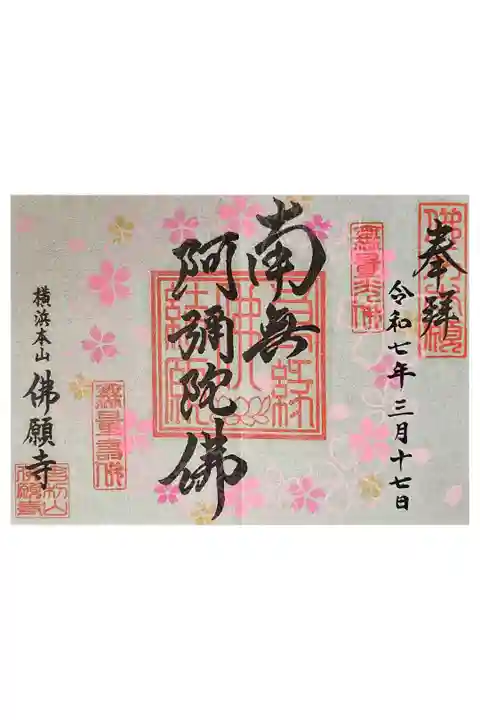 奉拝
令和七年三月十七日
無量光佛
南無
阿彌陀佛
無量壽佛
横浜本山
佛願寺